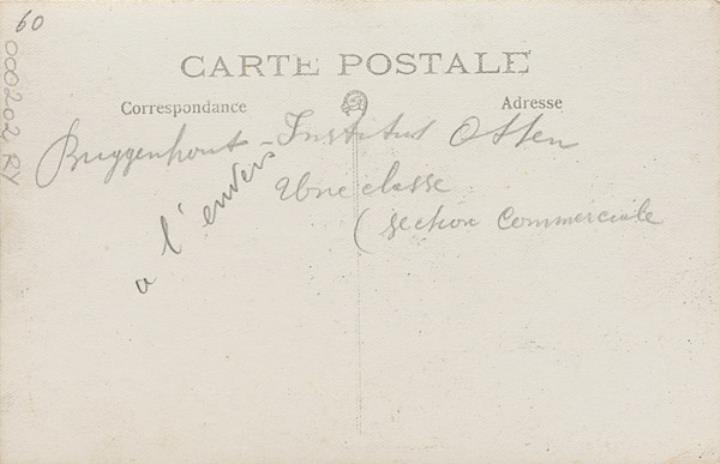 60
000202 RY
CARTE POSTALE
Correspondance
Adresse
Buggenhout - Institut Otten
Une classe
(section Commerciale
a l'envers